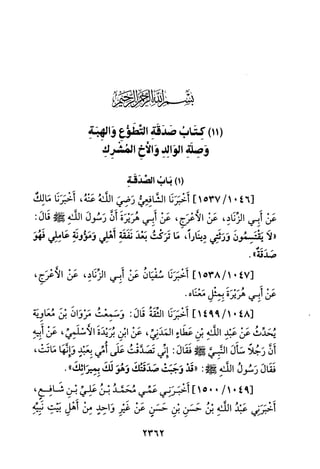 بسم الله الرحمن الرحيم
(١١) كتَابُ صَدَقَةِ التَّطَوُّعِ وَالهِبَةِ
وَصِلَةِ الوَالِدِ وَالأَخِ المُشْرِكِ
(١) بَابُ الصَّدَقَةِ
[١٥٣٧/١٠٤٦] أَخْبَرَنَا الشَّافِعِيُّ رَضِيَ اللَّهُ عَنْهُ، أَخْبَرَنَا مَالِكٌ
عَنْ أَبِي الزِّنَادِ، عَنْ الأَعْرَجِ، عَنْ أَبِي هُرَيْرَةَ أَنَّ رَسُولَ اللَّهِ ﷺ قَالَ:
«لَا يَقْتَسِمُونَ وَرَثَتِي دِينَاراً، مَا تَرَكْتُ بَعْدَ نَفَقَةِ أَهْلِي وَمَؤُونَةِ عَامِلِي فَهُوَ
صَدَقَةٌ».
[١٥٣٨/١٠٤٧] أَخْبَرَنَا سُفْيَانُ عَنْ أَبِي الزِّنَادِ، عَنِ الأَعْرَجِ،
عَنْ أَبِي هُرَيْرَةَ بِمِثْلِ مَعْنَاه.
[١٤٩٩/١٠٤٨] أَخْبَرَنَا الثِّقَةُ قَالَ: وَسَمِعْتُ مَرْوَانَ بْنَ مُعَاوِيَةَ
يُحَدِّثُ عَنْ عَبْدِ اللَّهِ بْنِ عَطَاءٍ المَدَنِيِّ، عَنْ ابْنِ بُرَيْدَةَ الأَسْلَمِيِّ، عَنْ أَبِيهِ
أَنَّ رَجُلاً سَأَلَ النَّبِيَّ ﷺ فَقَالَ: إِنِّي تَصَدَّقْتُ عَلَى أُمِّي بِعَبْدٍ وَإِنَّهَا مَاتَتْ،
فَقَالَ رَسُولُ اللَّهِ ﷺ: «قَدْ وَجَبَتْ صَدَقَتُكَ وَهُوَ لَكَ بِمِيرَاثِكَ».
[١٥٠٠/١٠٤٩] أَخْبَرَنِي عَمِّي مُحَمَّدُ بْنُ عَلِيِّ بْنِ شَافِعٍ،
أَخْبَرَنِي عَبْدُ اللَّهِ بْنُ حَسَنِ بْنِ حَسَنٍ عَنْ غَيْرِ وَاحِدٍ مِنْ أَهْلِ بَيْتِ نَبِيِّهِ
٢٣٦٢